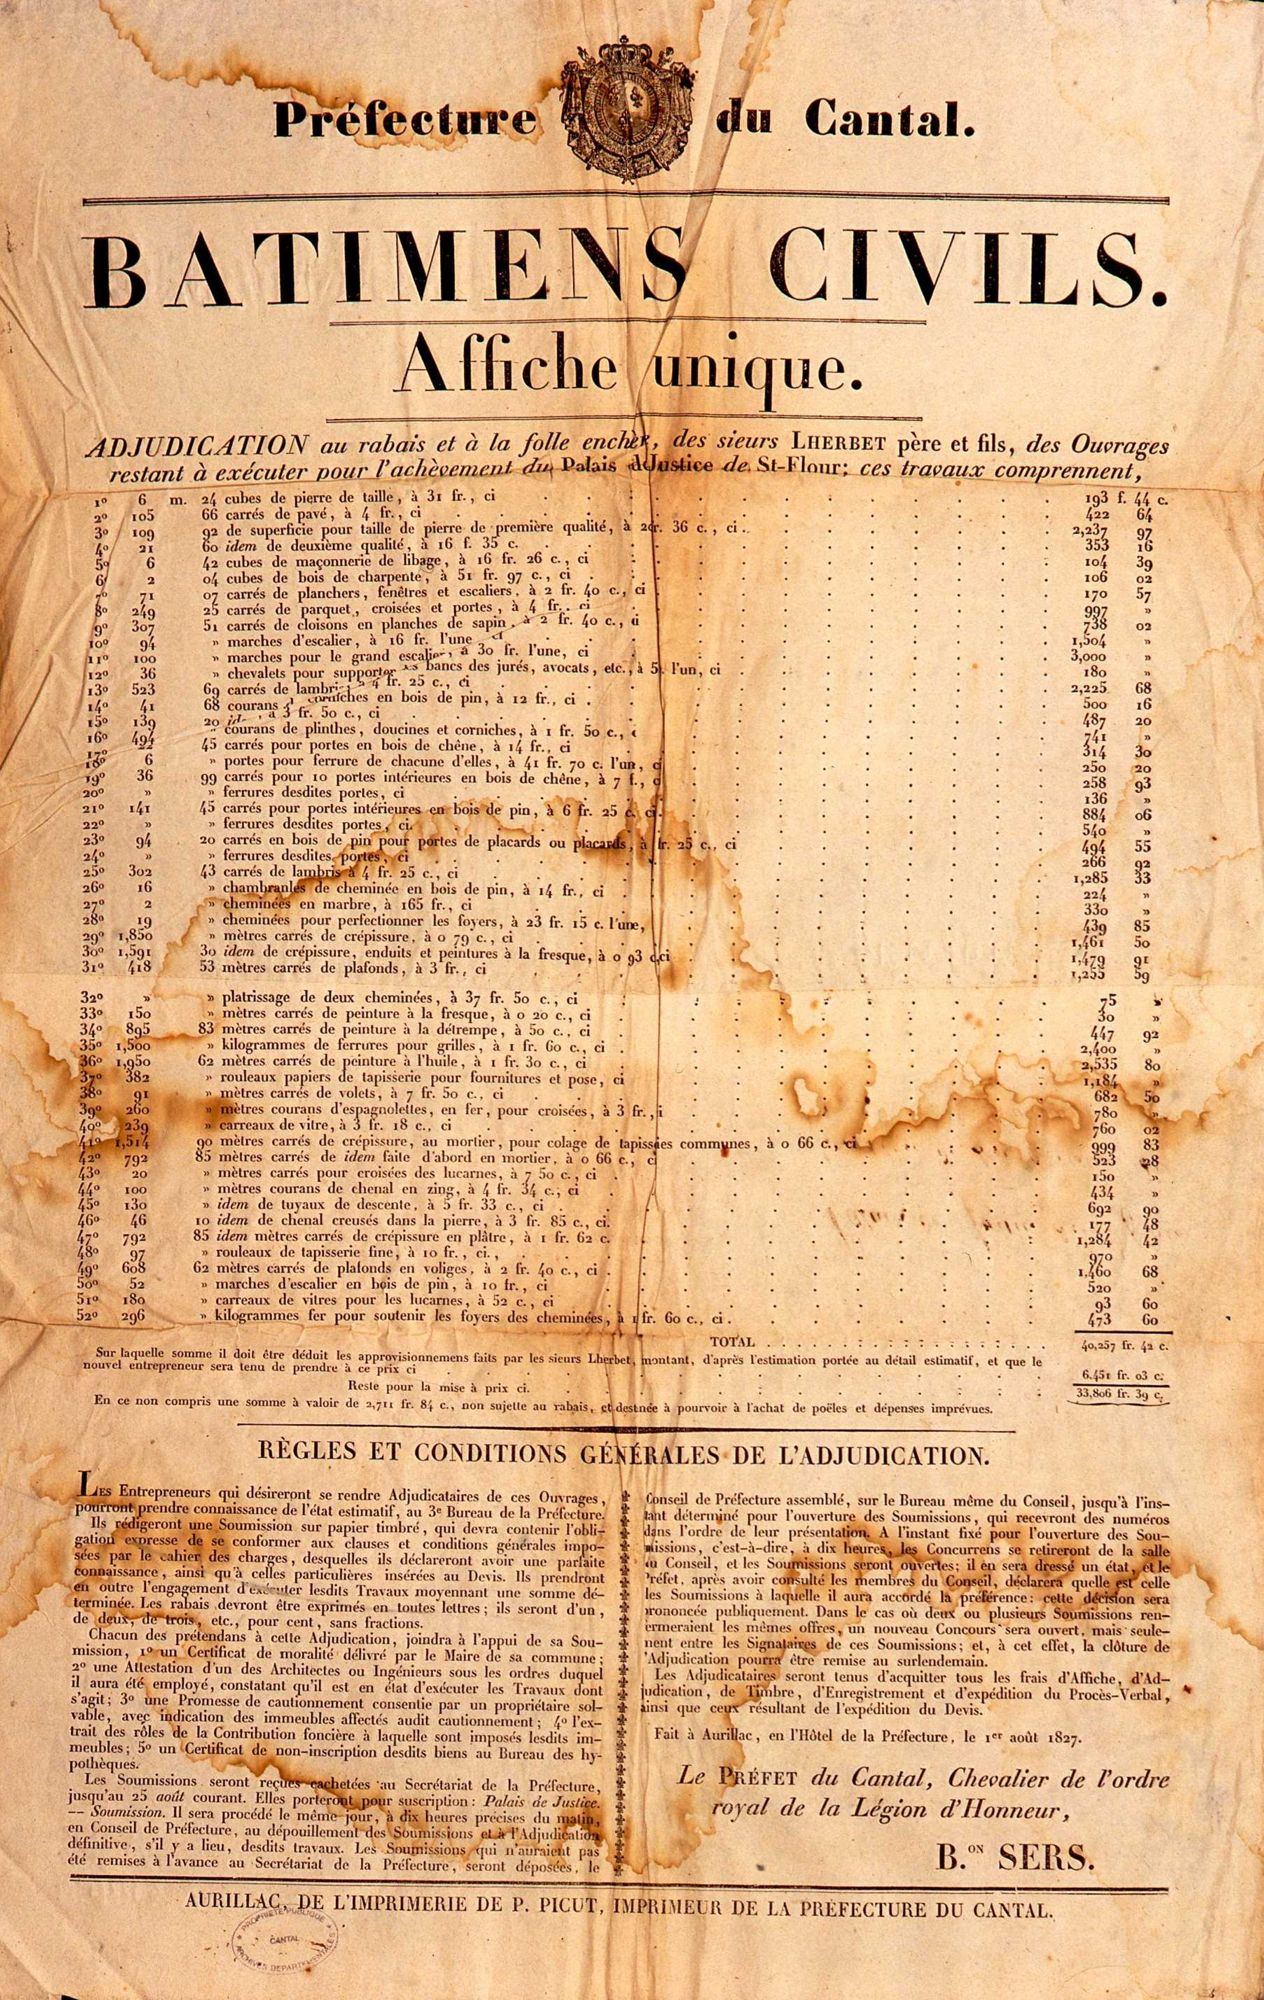 Préfecture du Cantal.
BATIMENS CIVILS.
Affiche unique.
ADJUDICATION au rabais et à la folle enchère, des sieurs LHERBET père et fils, des Ouvrages
restant à exécuter pour l'achèvement du Palais de Justice de St-Flour; ces travaux comprennent,
1º 6 m. 24 cubes de pierre de taille, à 31 fr., ci 193 f. 44 c.
2º 105 66 carrés de pavé, à 4 fr., ci 422 64
3º 109 92 de superficie pour taille de pierre de première qualité, à 20 fr. 36 c., ci 2,237 97
4º 21 60 idem de deuxième qualité, à 16 f. 35 c. 353 16
5º 6 42 cubes de maçonnerie de libage, à 16 fr. 26 c., ci 104 39
6º 2 04 cubes de bois de charpente, à 51 fr. 97 c., ci 106 02
7º 71 07 carrés de planchers, fenêtres et escaliers, à 2 fr. 40 c., ci 170 57
8º 249 25 carrés de parquet, croisées et portes, à 4 fr., ci 997 »
9º 307 51 carrés de cloisons en planches de sapin, à 2 fr. 40 c., ci 738 02
10º 94 » marches d'escalier, à 16 fr. l'une ci 1,504 »
11º 100 » marches pour le grand escalier, à 30 fr. l'une, ci 3,000 »
12º 36 » chevalets pour supporter les bancs des jurés, avocats, etc., à 5 l'un, ci 180 »
13º 523 69 carrés de lambris à 4 fr. 25 c., ci 2,225 68
14º 41 68 courans corniches en bois de pin, à 12 fr., ci 500 16
15º 139 20 id., à 3 fr. 50 c., ci 487 20
16º 494 » courans de plinthes, doucines et corniches, à 1 fr. 50 c., 741 »
17º 22 45 carrés pour portes en bois de chêne, à 14 fr., ci 314 30
18º 6 » portes pour ferrure de chacune d'elles, à 41 fr. 70 c. l'un, c 250 20
19º 36 99 carrés pour 10 portes intérieures en bois de chêne, à 7 f., c 258 93
20º » » ferrures desdites portes, ci 136 »
21º 141 45 carrés pour portes intérieures en bois de pin, à 6 fr. 25 c. ci 884 06
22º » » ferrures desdites portes, ci. 540 »
23º 94 20 carrés en bois de pin pour portes de placards ou placards, à fr. 25 c., ci 494 55
24º » » ferrures desdites portes, ci 266 92
25º 302 43 carrés de lambris à 4 fr. 25 c., ci 1,285 33
26º 16 » chambranles de cheminée en bois de pin, à 14 fr., ci 224 »
27º 2 » cheminées en marbre, à 165 fr., ci 330 »
28º 19 » cheminées pour perfectionner les foyers, à 23 fr. 15 c. l'une, 439 85
29º 1,850 » mètres carrés de crépissure, à 0 79 c., ci 1,461 50
30º 1,591 30 idem de crépissure, enduits et peintures à la fresque, à 0 93 c. ci 1,479 91
31º 418 53 mètres carrés de plafonds, à 3 fr., ci 1,255 59
32º » » platrissage de deux cheminées, à 37 fr. 50 c., ci 75 »
33º 150 » mètres carrés de peinture à la fresque, à 0 20 c., ci 30 »
34º 895 83 mètres carrés de peinture à la détrempe, à 50 c., ci 447 92
35º 1,500 » kilogrammes de ferrures pour grilles, à 1 fr. 60 c., ci 2,400 »
36º 1,950 62 mètres carrés de peinture à l'huile, à 1 fr. 30 c., ci 2,535 80
37º 382 » rouleaux papiers de tapisserie pour fournitures et pose, ci 1,184 »
38º 91 » mètres carrés de volets, à 7 fr. 50 c., ci 682 50
39º 260 » mètres courans d'espagnolettes, en fer, pour croisées, à 3 fr., i 780 »
40º 239 » carreaux de vitre, à 3 fr. 18 c., ci 760 02
41º 1,514 90 mètres carrés de crépissure, au mortier, pour colage de tapissées communes, à 0 66 c., ci 999 83
42º 792 85 mètres carrés de idem faite d'abord en mortier, à 0 66 c., c 523 28
43º 20 » mètres carrés pour croisées des lucarnes, à 7 50 c., ci 150 »
44º 100 » mètres courans de chenal en zing, à 4 fr. 34 c., ci 434 »
45º 130 » idem de tuyaux de descente, à 5 fr. 33 c., ci 692 90
46º 46 10 idem de chenal creusés dans la pierre, à 3 fr. 85 c., ci. 177 48
47º 792 85 idem mètres carrés de crépissure en plâtre, à 1 fr. 62 c. 1,284 42
48º 97 » rouleaux de tapisserie fine, à 10 fr., ci., 970 »
49º 608 62 mètres carrés de plafonds en voliges, à 2 fr. 40 c., ci 1,460 68
50º 52 » marches d'escalier en bois de pin, à 10 fr., ci 520 »
51º 180 » carreaux de vitres pour les lucarnes, à 52 c., ci 93 60
52º 296 » kilogrammes fer pour soutenir les foyers des cheminées, à 1 fr. 60 c., ci. 473 60
TOTAL 40,257 fr. 42 c.
Sur laquelle somme il doit être déduit les approvisionnemens faits par les sieurs Lherbet, montant, d'après l'estimation portée au détail estimatif, et que le
nouvel entrepreneur sera tenu de prendre à ce prix ci 6,451 fr. 03 c.
Reste pour la mise à prix ci. 33,806 fr. 39 c.
En ce non compris une somme à valoir de 2,711 fr. 84 c., non sujette au rabais, et destinée à pourvoir à l'achat de poëles et dépenses imprévues.
RÈGLES ET CONDITIONS GÉNÉRALES DE L'ADJUDICATION.
LES Entrepreneurs qui désireront se rendre Adjudicataires de ces Ouvrages,
pourront prendre connaissance de l'état estimatif, au 3e Bureau de la Préfecture.
Ils rédigeront une Soumission sur papier timbré, qui devra contenir l'obli-
gation expresse de se conformer aux clauses et conditions générales impo-
sées par le cahier des charges, desquelles ils déclareront avoir une parfaite
connaissance, ainsi qu'à celles particulières insérées au Devis. Ils prendront
en outre l'engagement d'exécuter lesdits Travaux moyennant une somme dé-
terminée. Les rabais devront être exprimés en toutes lettres; ils seront d'un,
de deux, de trois, etc., pour cent, sans fractions.
Chacun des prétendans à cette Adjudication, joindra à l'appui de sa Sou-
mission, 1º un Certificat de moralité délivré par le Maire de sa commune;
2º une Attestation d'un des Architectes ou Ingénieurs sous les ordres duquel
il aura été employé, constatant qu'il est en état d'exécuter les Travaux dont
s'agit; 3º une Promesse de cautionnement consentie par un propriétaire sol-
vable, avec indication des immeubles affectés audit cautionnement; 4º l'ex-
trait des rôles de la Contribution foncière à laquelle sont imposés lesdits im-
meubles; 5º un Certificat de non-inscription desdits biens au Bureau des hy-
pothèques.
Les Soumissions seront reçues cachetées au Secrétariat de la Préfecture,
jusqu'au 25 août courant. Elles porteront pour suscription: Palais de Justice.
— Soumission. Il sera procédé le même jour, à dix heures précises du matin,
en Conseil de Préfecture, au dépouillement des Soumissions et à l'Adjudication
définitive, s'il y a lieu, desdits travaux. Les Soumissions qui n'auraient pas
été remises à l'avance au Secrétariat de la Préfecture, seront déposées, le
Conseil de Préfecture assemblé, sur le Bureau même du Conseil, jusqu'à l'ins-
tant déterminé pour l'ouverture des Soumissions, qui recevront des numéros
dans l'ordre de leur présentation. A l'instant fixé pour l'ouverture des Sou-
missions, c'est-à-dire, à dix heures, les Concurrens se retireront de la salle
du Conseil, et les Soumissions seront ouvertes; il en sera dressé un état, et le
Préfet, après avoir consulté les membres du Conseil, déclarera quelle est celle
les Soumissions à laquelle il aura accordé la préférence: cette décision sera
prononcée publiquement. Dans le cas où deux ou plusieurs Soumissions ren-
fermeraient les mêmes offres, un nouveau Concours sera ouvert, mais seule-
ment entre les Signataires de ces Soumissions; et, à cet effet, la clôture de
l'Adjudication pourra être remise au surlendemain.
Les Adjudicataires seront tenus d'acquitter tous les frais d'Affiche, d'Ad-
judication, de Timbre, d'Enregistrement et d'expédition du Procès-Verbal,
ainsi que ceux résultant de l'expédition du Devis.
Fait à Aurillac, en l'Hôtel de la Préfecture, le 1er août 1827.
Le PRÉFET du Cantal, Chevalier de l'ordre
royal de la Légion d'Honneur,
B.ON SERS.
AURILLAC, DE L'IMPRIMERIE DE P. PICUT, IMPRIMEUR DE LA PRÉFECTURE DU CANTAL.
PROPRIÉTÉ PUBLIQUE
CANTAL
ARCHIVES DEPARTEMENTALES